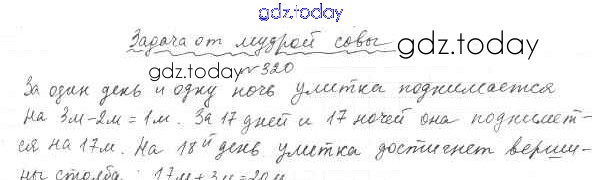 gdz.today
Задача от мудрой совы
gdz.today
gdz.today
№320
За один день и одну ночь улитка поднимается
на 3м-2м=1м. За 17 дней и 17 ночей она поднимет-
ся на 17м. На 18й день улитка достигнет верши-
ны столба. 17м+3м=20м